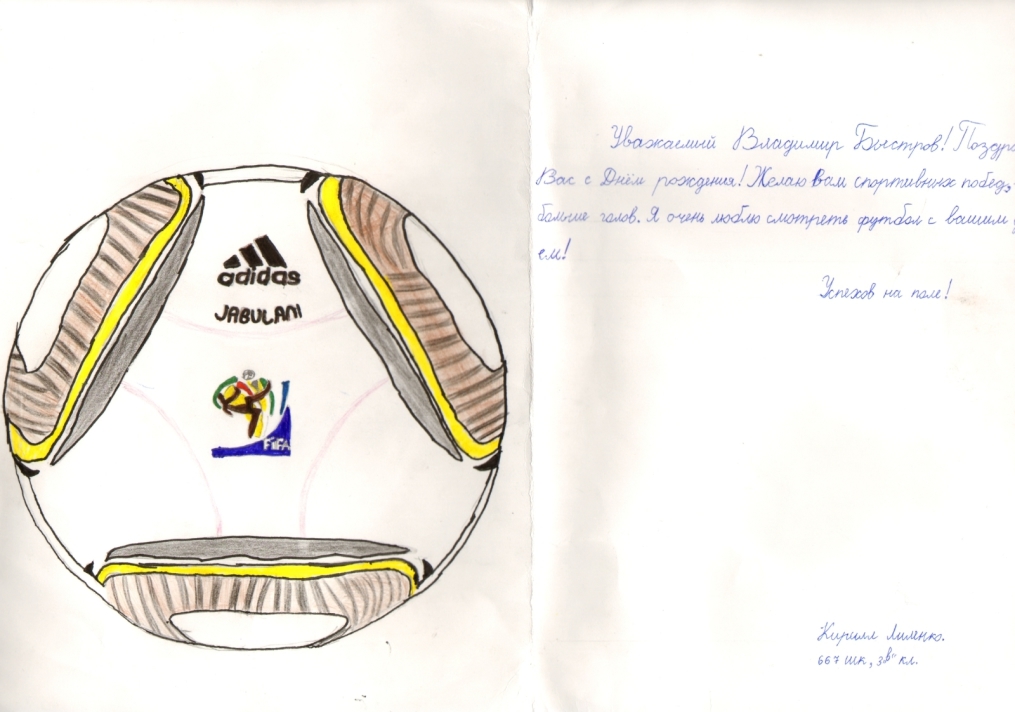 adidas
JABULANI
FIFA
Уважаемый Владимир Быстров! Поздра
Вас с Днём рождения! Желаю Вам спортивных побед,
больше голов. Я очень люблю смотреть футбол с вашим
ем!
Успехов на поле!
Кирилл
667 шк, 3"в" кл.